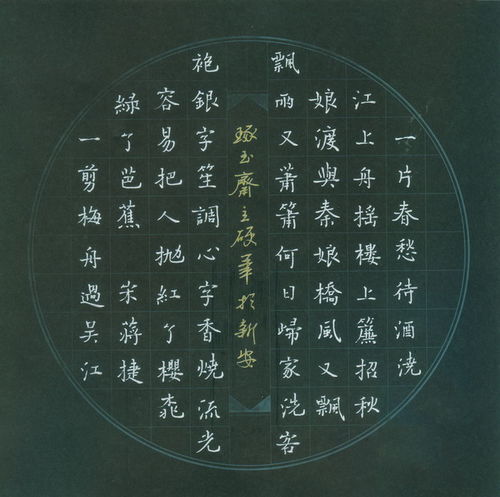 一片春愁待酒澆
江上舟搖樓上簾招秋
娘渡與秦娘橋風又飄
飄雨又蕭蕭何日歸家洗客
琢玉齋主硬筆於新安
袍銀字笙調心字香燒流光
容易把人拋紅了櫻桃
綠了芭蕉 宋蔣捷
一剪梅舟過吳江